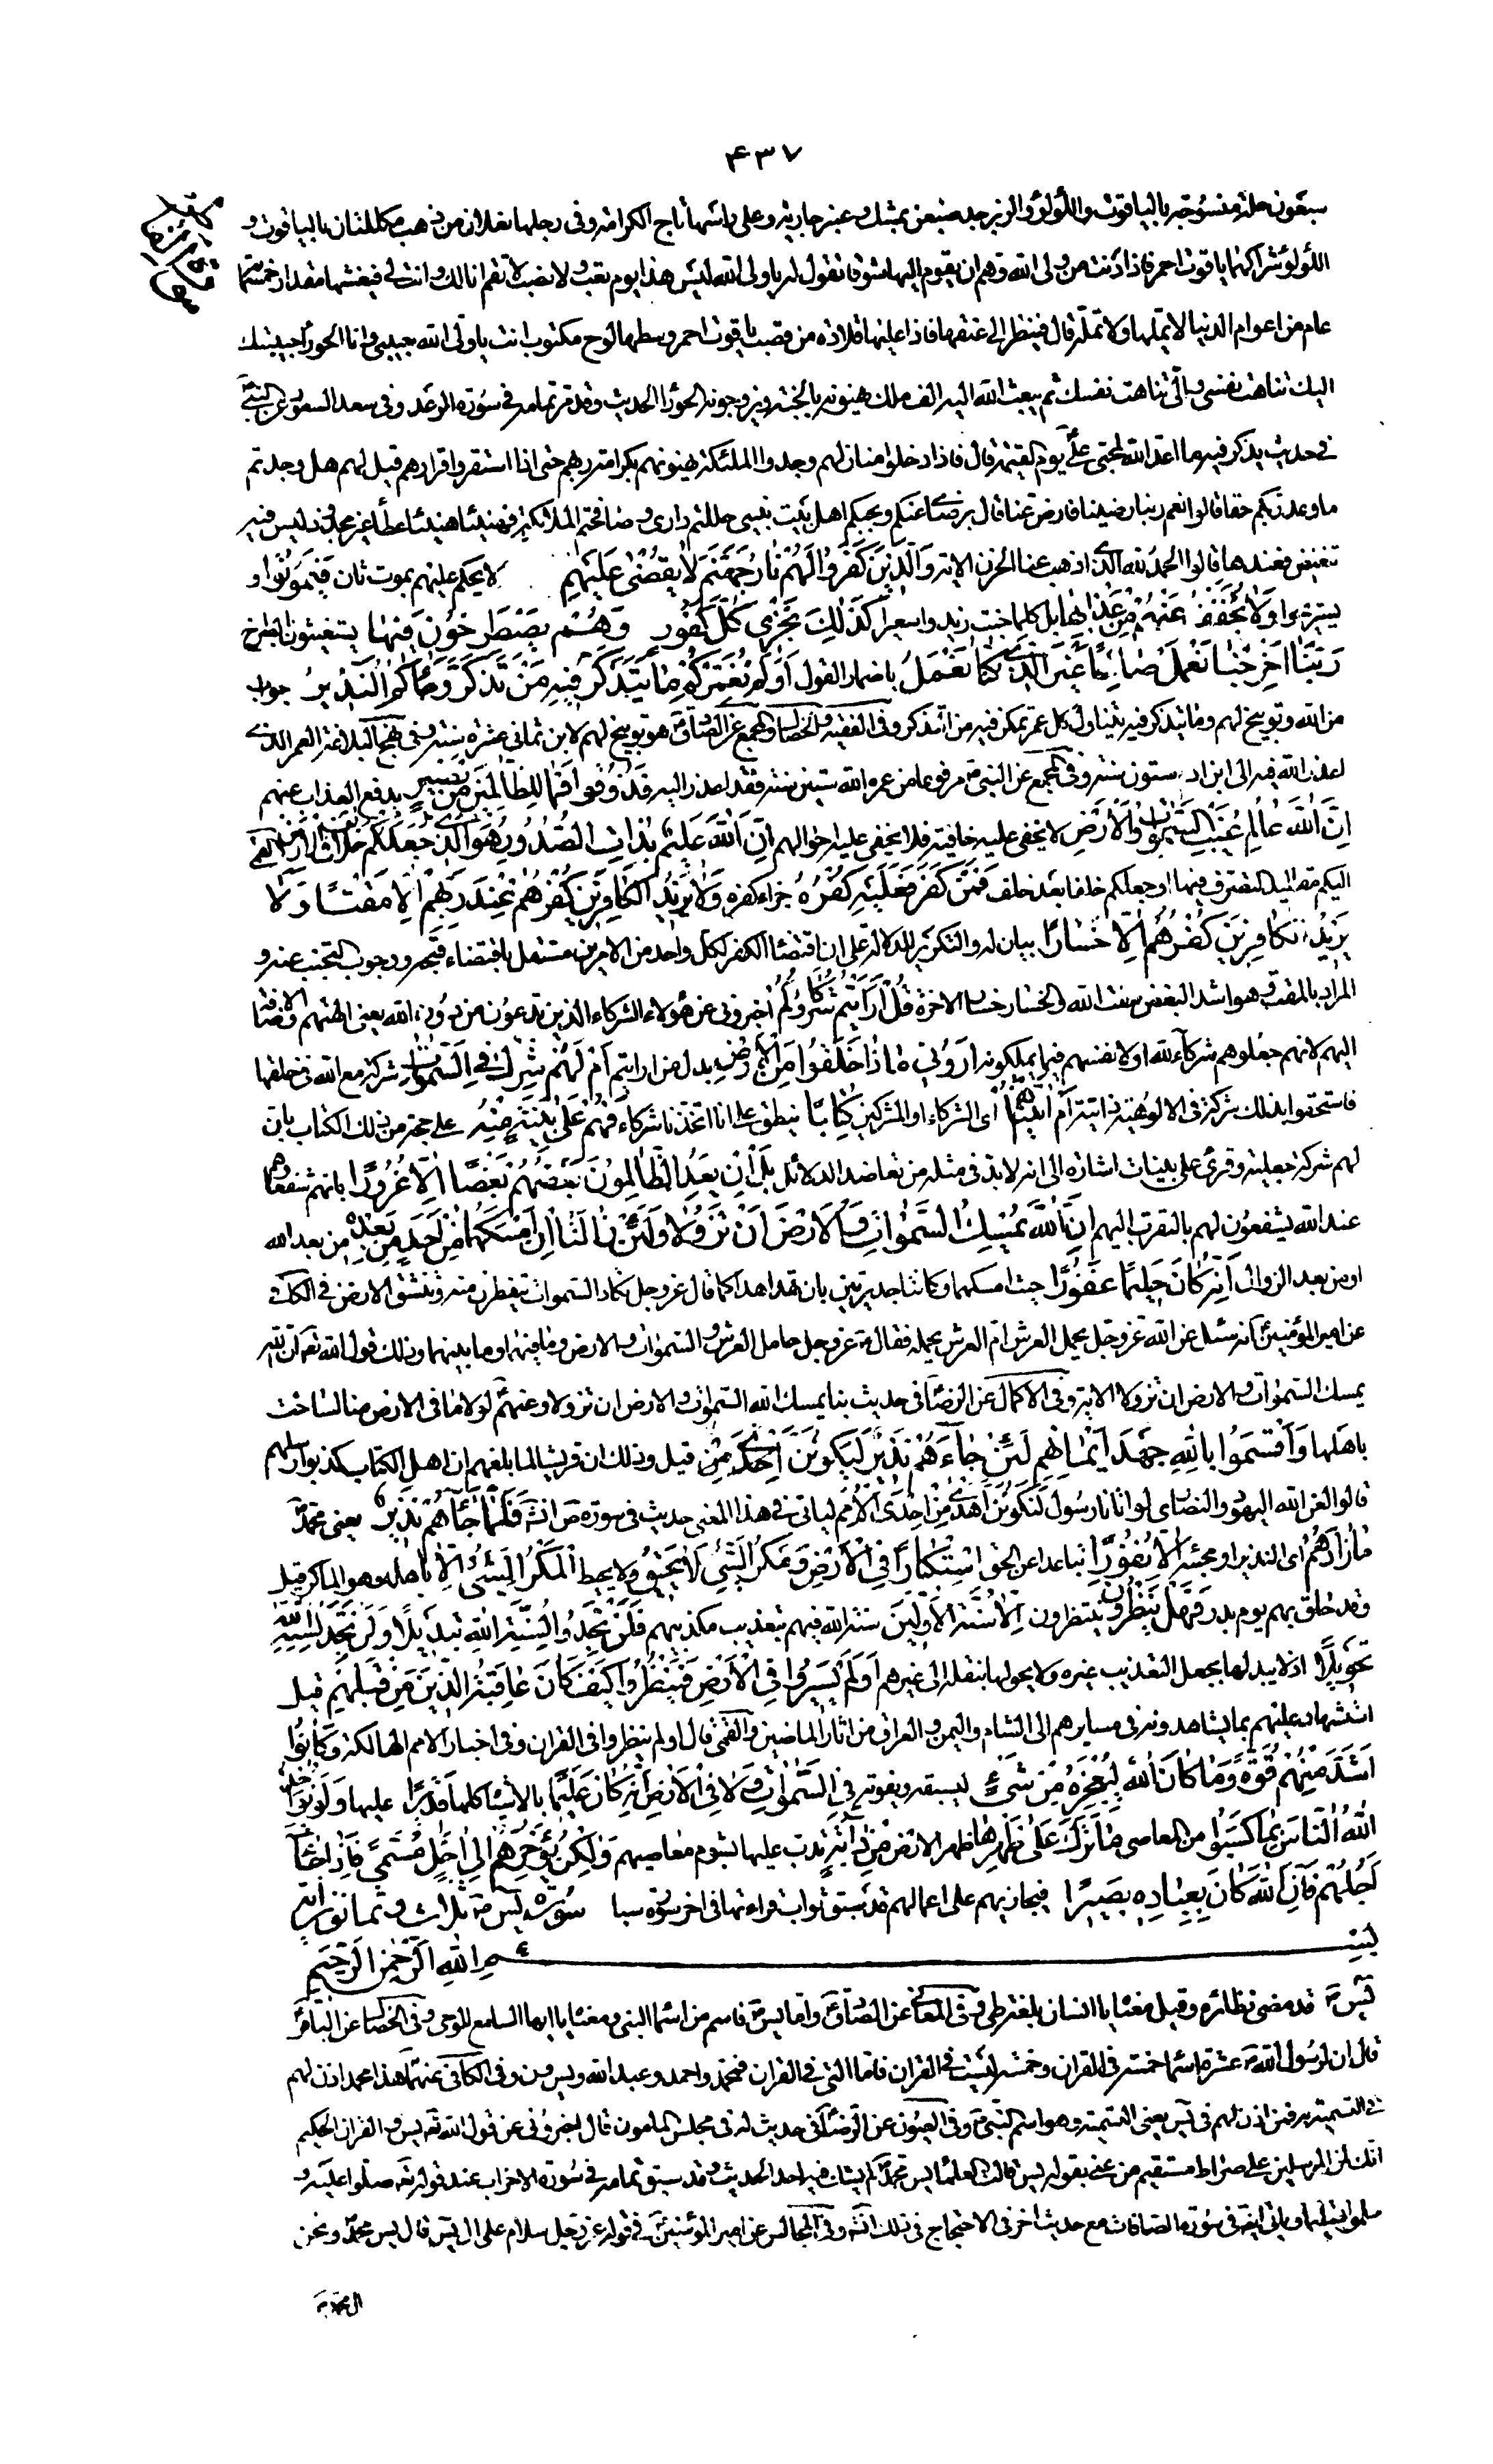 ۴۳۷
سبعون حلة منسوجة بالياقوت واللؤلؤ والزبرجد صبغن بمسك وعنبر جارية وعلى راسها تاج الكرامة وفى رجلها نعلان من ذهب مكللتان بالياقوت و
اللؤلؤ شراكهما ياقوت احمر فاذا دنت من ولى الله وهم ان يقوم اليها شوقا تقول له يا ولى الله ليس هذا يوم تعب ولا نصب لا تقم انا لك وانت لى فيعتنقها مقدار خمسمأة
عام من اعوام الدنيا لا يملها ولا تمله قال فينظر الى عنقها فاذا عليها قلادة من قصب ياقوت احمر وسطها لوح مكتوب انت يا ولى الله حبيبى وانا الحوراء حبيبتك
اليك تناهت نفسى والى تناهت نفسك ثم يبعث الله اليه الف ملك يهنونه بالجنة ويزوجونه الحوراء الحديث وقد مر تمامه فى سورة الرعد وفى سعد السعود عن النبى
فى حديث يذكر فيه ما اعد الله لمحبى على يوم القيمة قال فاذا دخلوا منازلهم وجدوا الملئكة يهنونهم بكرامة ربهم حتى اذا استقروا قرارهم قيل لهم هل وجدتم
ما وعد ربكم حقا قالوا نعم ربنا رضينا فارض عنا قال برضاى عنكم وبحبكم اهل بيت نبيى حللتم دارى وصافحتم الملائكة فهنيئا هنيئا عطاء غير مجذوذ ليس فيه
تنغيص فعندها قالوا الحمد لله الذى اذهب عنا الحزن الاية وَالَّذِينَ كَفَرُوا لَهُمْ نَارُ جَهَنَّمَ لَا يُقْضَى عَلَيْهِمْ لا يحكم عليهم بموت ثان فَيَمُوتُوا و
يستريحوا وَلَا يُخَفَّفُ عَنْهُمْ مِنْ عَذَابِهَا بل كلما خبت زيد اسعارا كَذَلِكَ نَجْزِي كُلَّ كَفُورٍ وَهُمْ يَصْطَرِخُونَ فِيهَا يستغيثون بصراخ
رَبَّنَا أَخْرِجْنَا نَعْمَلْ صَالِحًا غَيْرَ الَّذِي كُنَّا نَعْمَلُ باضمار القول أَوَلَمْ نُعَمِّرْكُمْ مَا يَتَذَكَّرُ فِيهِ مَنْ تَذَكَّرَ وَجَاءَكُمُ النَّذِيرُ جواب
من الله وتوبيخ لهم وما يتذكر فيه يتناول كل عمر تمكن فيه من التذكر وفى الفقيه والخصال والمجمع عن الصادق هو توبيخ لهم لابن ثمانى عشرة سنة وفى نهج البلاغة العمر الذى
اعذر الله فيه الى ابن ادم ستون سنة وفى المجمع عن النبى مرفوعا من عمره الله ستين سنة فقد اعذر اليه فَذُوقُوا فَمَا لِلظَّالِمِينَ مِنْ نَصِيرٍ يدفع العذاب عنهم
إِنَّ اللَّهَ عَالِمُ غَيْبِ السَّمَوَاتِ وَالْأَرْضِ لا يخفى عليه خافية فلا يخفى عليه احوالهم إِنَّهُ عَلِيمٌ بِذَاتِ الصُّدُورِ هُوَ الَّذِي جَعَلَكُمْ خَلَائِفَ فِي الْأَرْضِ القى
اليكم مقاليد التصرف فيها او جعلكم خلفا بعد خلف فَمَنْ كَفَرَ فَعَلَيْهِ كُفْرُهُ جزاء كفره وَلَا يَزِيدُ الْكَافِرِينَ كُفْرُهُمْ عِنْدَ رَبِّهِمْ إِلَّا مَقْتًا وَلَا
يَزِيدُ الْكَافِرِينَ كُفْرُهُمْ إِلَّا خَسَارًا بيان له والتكرير للدلالة على ان اقتضاء الكفر لكل واحد من الامرين مستقل باقتضاء قبحه ووجوب التجنب عنه و
المراد بالمقت وهو اشد البغض مقت الله وبالخسار خسار الاخرة قُلْ أَرَأَيْتُمْ شُرَكَاءَكُمُ اخبرونى عن هؤلاء الشركاء الَّذِينَ تَدْعُونَ مِنْ دُونِ اللَّهِ يعنى الهتهم والاضافة
اليهم لانهم جعلوهم شركاء لله او لانفسهم فيما يملكونه أَرُونِي مَاذَا خَلَقُوا مِنَ الْأَرْضِ بدل من ارايتم أَمْ لَهُمْ شِرْكٌ فِي السَّمَوَاتِ شركة مع الله فى خلقها
فاستحقوا بذلك شركة فى الالوهية ذاتية أَمْ آتَيْنَاهُمْ اى الشركاء او المشركين كِتَابًا ينطق على انا اتخذنا شركاء فَهُمْ عَلَى بَيِّنَةٍ مِنْهُ على حجة من ذلك الكتاب بان
لهم شركة جعلية وقرئ على بينات اشارة الى انه لا بد فى مثله من تعاضد الدلائل بَلْ إِنْ يَعِدُ الظَّالِمُونَ بَعْضُهُمْ بَعْضًا إِلَّا غُرُورًا بانهم شفعاؤهم
عند الله يشفعون لهم بالتقرب اليهم إِنَّ اللَّهَ يُمْسِكُ السَّمَوَاتِ وَالْأَرْضَ أَنْ تَزُولَا وَلَئِنْ زَالَتَا إِنْ أَمْسَكَهُمَا مِنْ أَحَدٍ مِنْ بَعْدِهِ من بعد الله
او من بعد الزوال إِنَّهُ كَانَ حَلِيمًا غَفُورًا حيث امسكهما وكانتا جديرتين بان تهدا هدا كما قال عز وجل تكاد السموات يتفطرن منه وتنشق الارض فى الكافى
عن امير المؤمنين انه سئل عن الله عز وجل يحمل العرش ام العرش يحمله فقال عز وجل حامل العرش والسموات والارض وما فيهما وما بينهما وذلك قول الله تعالى ان الله
يمسك السموات والارض ان تزولا الاية وفى الاكمال عن الرضا فى حديث بنا يمسك الله السموات والارض ان تزولا وعنهم لولا ما فى الارض منا لساخت
باهلها وَأَقْسَمُوا بِاللَّهِ جَهْدَ أَيْمَانِهِمْ لَئِنْ جَاءَهُمْ نَذِيرٌ لَيَكُونُنَّ أَهْدَى مِنْ قيل وذلك ان قريشا لما بلغهم ان اهل الكتاب كذبوا رسلهم
قالوا لعن الله اليهود والنصارى لو اتانا رسول لنكونن أهدى مِنْ إِحْدَى الْأُمَمِ لياتى فى هذا المعنى حديث فى سورة ص انش فَلَمَّا جَاءَهُمْ نَذِيرٌ يعنى محمد
مَا زَادَهُمْ اى النذير او مجيئه إِلَّا نُفُورًا تباعدا عن الحق اسْتِكْبَارًا فِي الْأَرْضِ وَمَكْرَ السَّيِّئِ وَلَا يَحِيقُ ولا يحيط الْمَكْرُ السَّيِّئُ إِلَّا بِأَهْلِهِ وهو الماكر قيل
وقد حاق بهم يوم بدر فَهَلْ يَنْظُرُونَ ينتظرون إِلَّا سُنَّتَ الْأَوَّلِينَ سنة الله فيهم بتعذيب مكذبيهم فَلَنْ تَجِدَ لِسُنَّةِ اللَّهِ تَبْدِيلًا وَلَنْ تَجِدَ لِسُنَّةِ اللَّهِ
تَحْوِيلًا اذ لا يبدلها بجعل التعذيب غيره ولا يحولها بنقله الى غيرهم أَوَلَمْ يَسِيرُوا فِي الْأَرْضِ فَيَنْظُرُوا كَيْفَ كَانَ عَاقِبَةُ الَّذِينَ مِنْ قَبْلِهِمْ قيل
استشهاد عليهم بما يشاهدونه فى مسايرهم الى الشام واليمن والعراق من اثار الماضين والقمى قال اولم ينظروا فى القران وفى اخبار الامم الهالكة وَكَانُوا
أَشَدَّ مِنْهُمْ قُوَّةً وَمَا كَانَ اللَّهُ لِيُعْجِزَهُ مِنْ شَيْءٍ ليسبقه ويفوته فِي السَّمَوَاتِ وَلَا فِي الْأَرْضِ إِنَّهُ كَانَ عَلِيمًا بالاشياء كلها قَدِيرًا عليها وَلَوْ يُؤَاخِذُ
اللَّهُ النَّاسَ بِمَا كَسَبُوا من المعاصى مَا تَرَكَ عَلَى ظَهْرِهَا ظهر الارض مِنْ دَابَّةٍ تدب عليها بشوم معاصيهم وَلَكِنْ يُؤَخِّرُهُمْ إِلَى أَجَلٍ مُسَمًّى فَإِذَا جَاءَ
أَجَلُهُمْ فَإِنَّ اللَّهَ كَانَ بِعِبَادِهِ بَصِيرًا فيجازيهم على اعمالهم قد سبق ثواب قراءتها فى اخر سورة سبا سورة يس ثلاث وثمانون اية
بِسْمِ اللَّهِ الرَّحْمَنِ الرَّحِيمِ
يس قد مضى نظائره وقيل معناه يا انسان بلغة طى وفى المعانى عن الصادق واما يس فاسم من اسماء النبى ومعناه يا ايها السامع للوحى وفى الخصال عن الباقر
قال ان لرسول الله عشرة اسماء خمسة فى القران وخمسة ليست فى القران فاما التى فى القران فمحمد واحمد وعبد الله ويس ون وفى الكافى عنهما هذا محمد اذن لهم
فى التسمية به فمن اذن لهم فى يس يعنى التسمية وهو اسم النبى وفى العيون عن الرضا فى حديث له فى مجلس المامون قال اخبرونى عن قول الله تع يس والقران الحكيم
انك لمن المرسلين على صراط مستقيم من عنى بقوله يس قالت العلماء يس محمد لم يشك فيه احد الحديث وقد سبق تمامه فى سورة الاحزاب عند قوله تع صلوا عليه و
سلموا تسليما وياتى ايضا فى سورة الصافات مع حديث اخر فى الاحتجاج فى ذلك انش وفى المجالس عن امير المؤمنين فى قوله عز وجل سلام على ال يس قال يس محمد ونحن
ال محمد